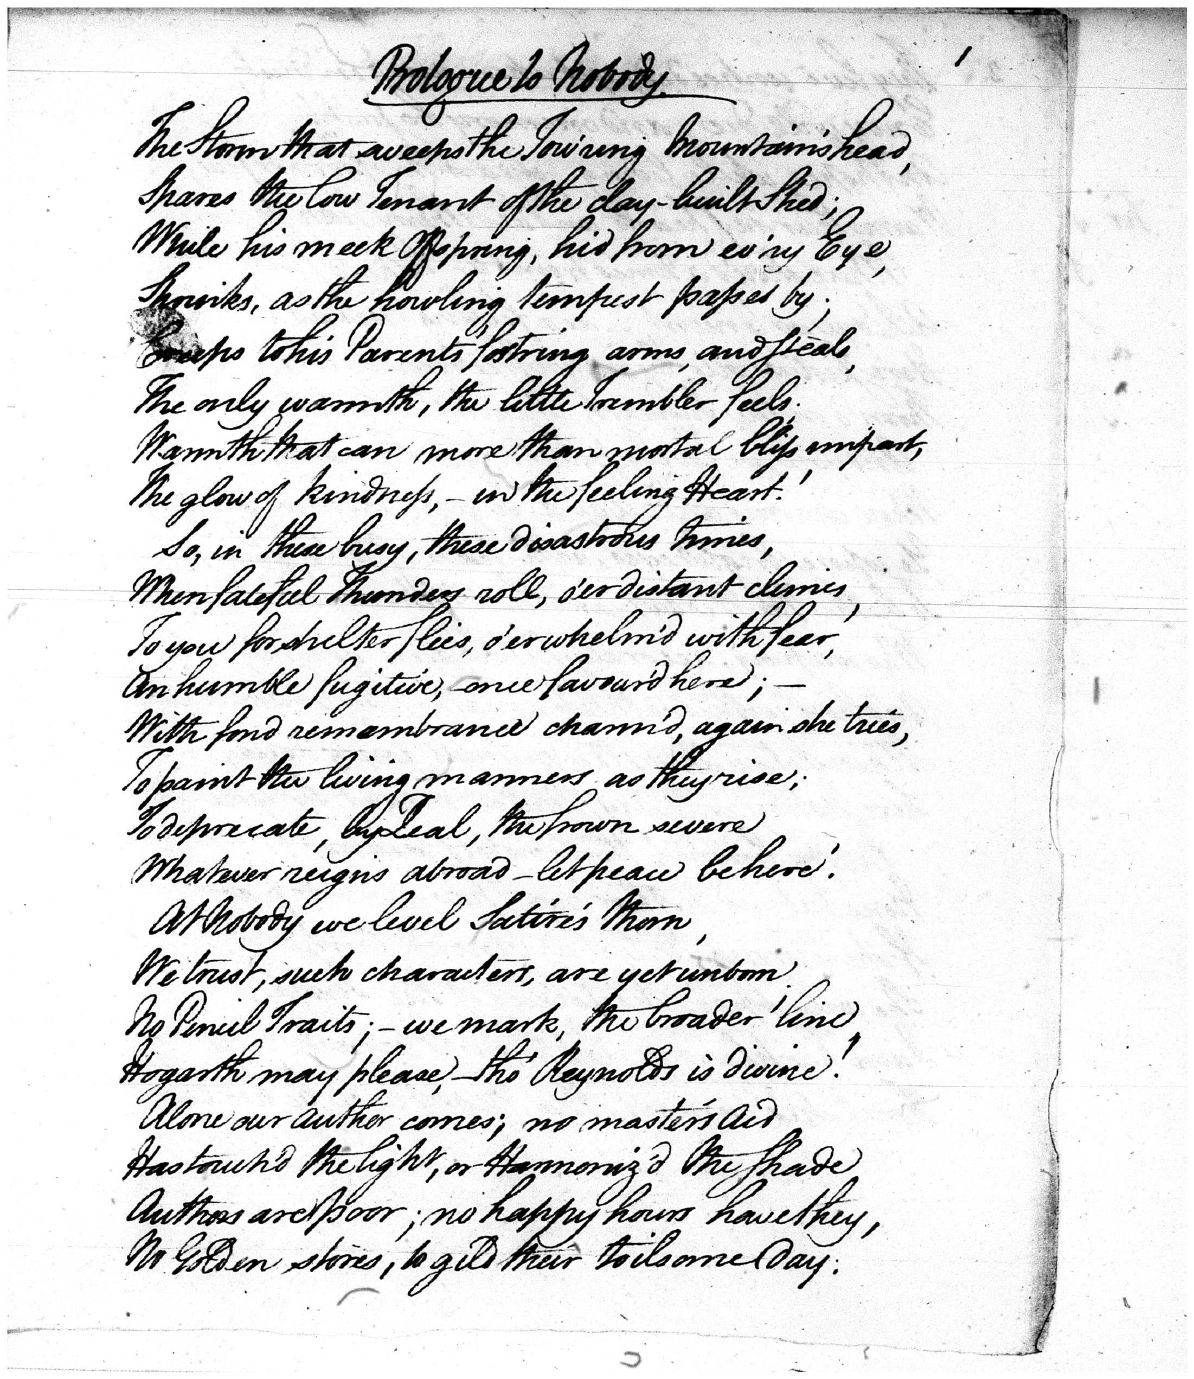 Prologue to Nobody.
1
The Storm that sweeps the Tow'ring Mountain's head,
Spares the low Tenant of the clay-built Shed;
While his meek Offspring, hid from ev'ry Eye,
Shrinks, as the howling tempest paſses by;
Creeps to his Parents' fostring arms, and steals,
The only warmth, the little Trembler feels.
Warmth that can more than mortal bliſs impart,
The glow of kindneſs, – in the feeling Heart!
So, in these busy, these disastrous times,
When fateful Thunders roll, o'er distant climes,
To you for shelter flies, o'erwhelm'd with fear,
An humble fugitive, – once favour'd here; –
With fond remembrance charm'd, again she tries,
To paint the living manners as they rise;
To deprecate, by Zeal, the frown severe
Whatever reigns abroad – let peace be here!
At Nobody we level Satire's thorn,
We trust, such characters, are yet unborn.
No Pencil Traits; – we mark, the broader line,
Hogarth may please, – tho' Reynolds is divine!
Alone our Author comes; no master's Aid
Has touch'd the light, or Harmoniz'd the Shade
Authors are poor; no happy hours have they,
No Golden stores, to gild their toilsome Day.